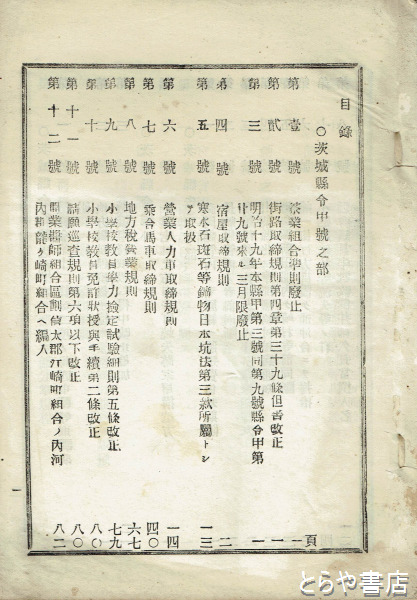 目錄
○茨城縣令甲號之部
頁
第壹號 茶業組合準則廢止 一
第貳號 街路取締規則第四章第三十九條但書改正 一
第三號 明治十九年本縣甲第三號同第九號縣令甲第
廿九號來ル三月限廢止 一
第四號 宿屋取締規則 二
第五號 寒水石斑石等鑛物日本坑法第三款所屬トシ
テ取扱 一三
第六號 營業人力車取締規則 一四
第七號 乘合馬車取締規則 四〇
第八號 地方税營業規則 六七
第九號 小學校敎員學力檢定試驗細則第五條改正 七九
第十號 小學校敎員免許狀授與手續第二條改正 八〇
第十一號 請願巡査規則第六項以下改正 八〇
第十二號 開業醫師組合區劃信太郡江崎町組合ノ內河
內郡龍ヶ崎町組合ヘ編入 八二
とらや書店